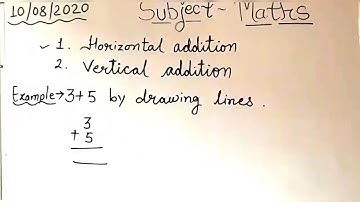 10/08/2020 Subject- Maths
1. Horizontal addition
2. Vertical addition
Example→3+5 by drawing lines.
3
+ 5